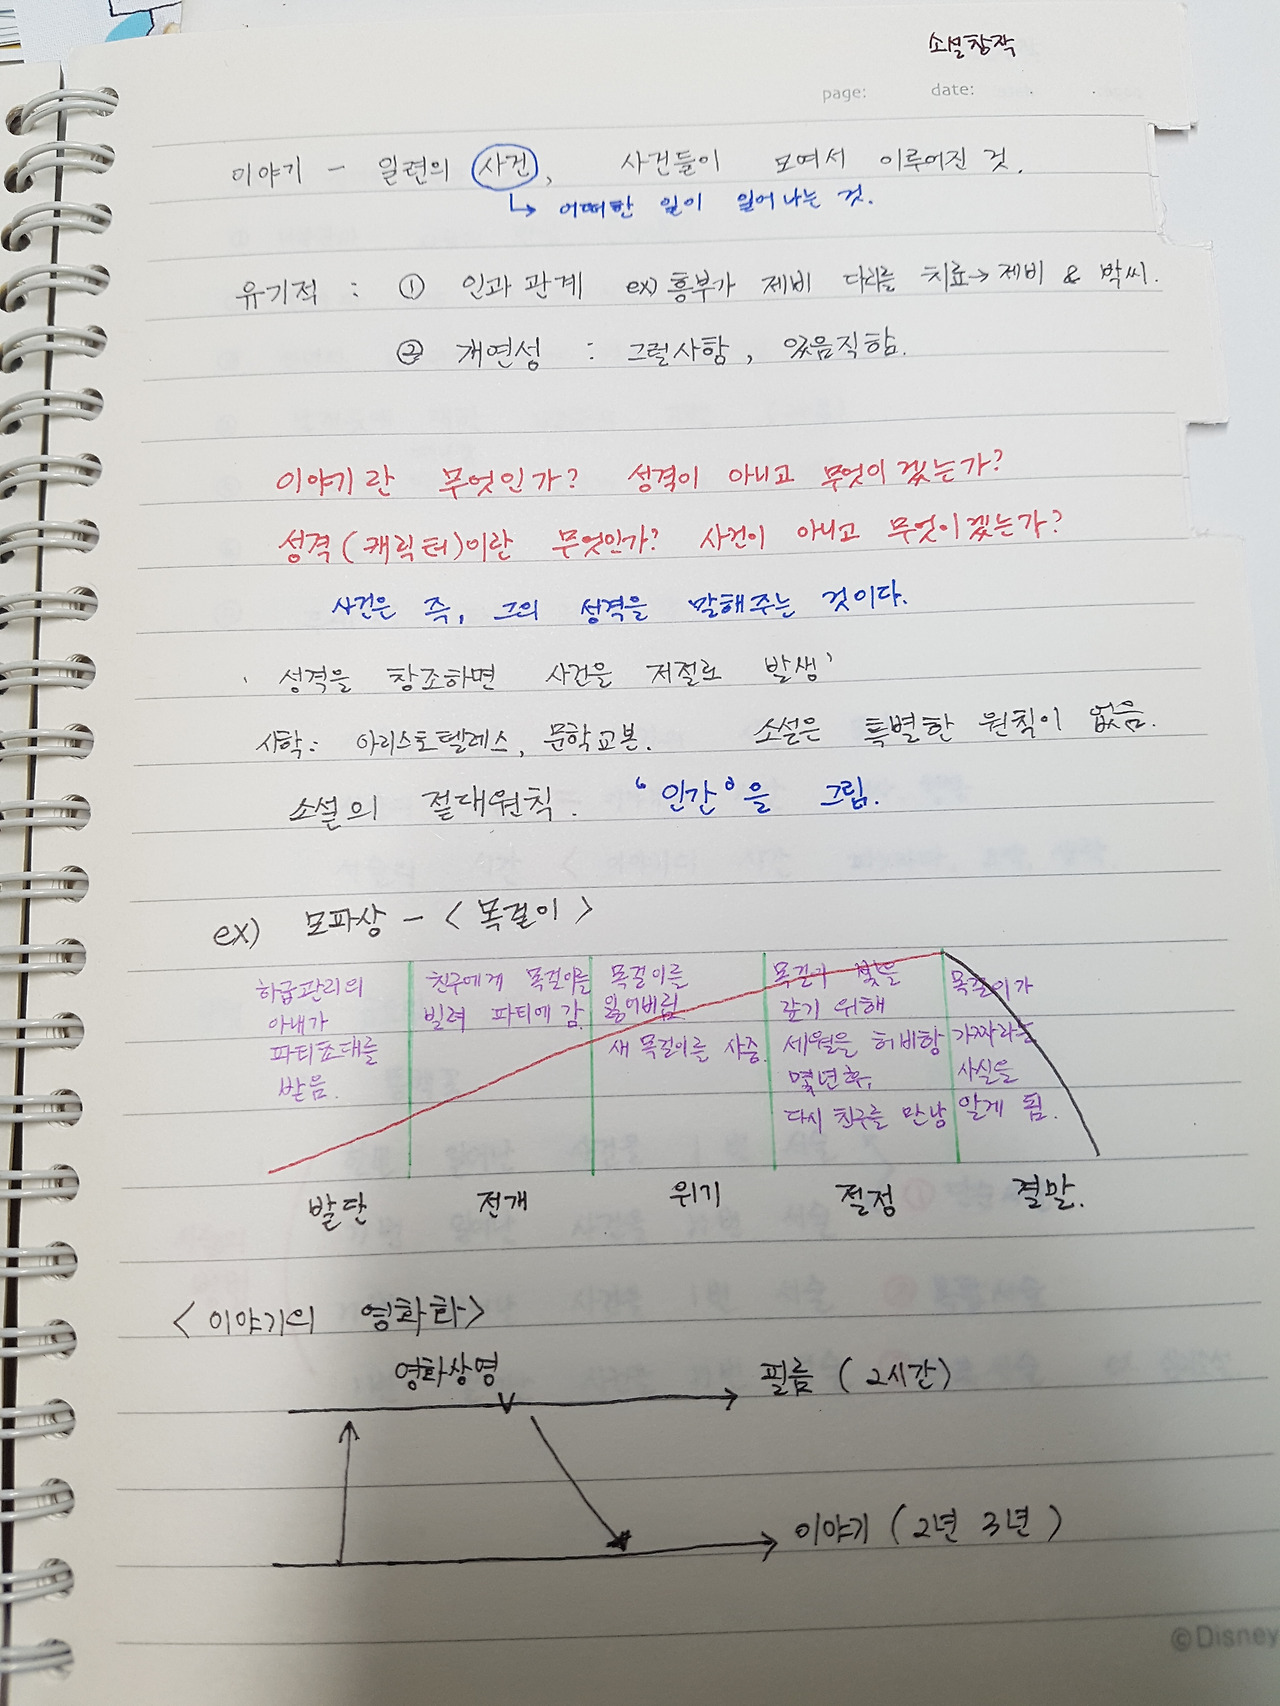 소설창작
page: date: . .
이야기 - 일련의 사건, 사건들이 모여서 이루어진 것.
↳ 어떠한 일이 일어나는 것.
유기적 : ① 인과관계 ex) 흥부가 제비 다리를 치료→제비 & 박씨.
② 개연성 : 그럴사함, 있음직함.
이야기란 무엇인가? 성격이 아니고 무엇이겠는가?
성격(캐릭터)이란 무엇인가? 사건이 아니고 무엇이겠는가?
사건은 즉, 그의 성격을 말해주는 것이다.
' 성격을 창조하면 사건은 저절로 발생'
시학: 아리스토텔레스, 문학교본. 소설은 특별한 원칙이 없음.
소설의 절대원칙. "인간"을 그림.
ex) 모파상 - <목걸이>
하급관리의 아내가 파티초대를 받음.
친구에게 목걸이를 빌려 파티에 감.
목걸이를 잃어버림
새 목걸이를 사줌.
목걸이 빚을 갚기 위해 세월을 허비함
몇년후, 다시 친구를 만남
목걸이가 가짜라는 사실을 알게 됨.
발단 전개 위기 절정 결말.
<이야기의 영화화>
영화상영 필름 (2시간)
이야기 (2년 3년)
©Disney